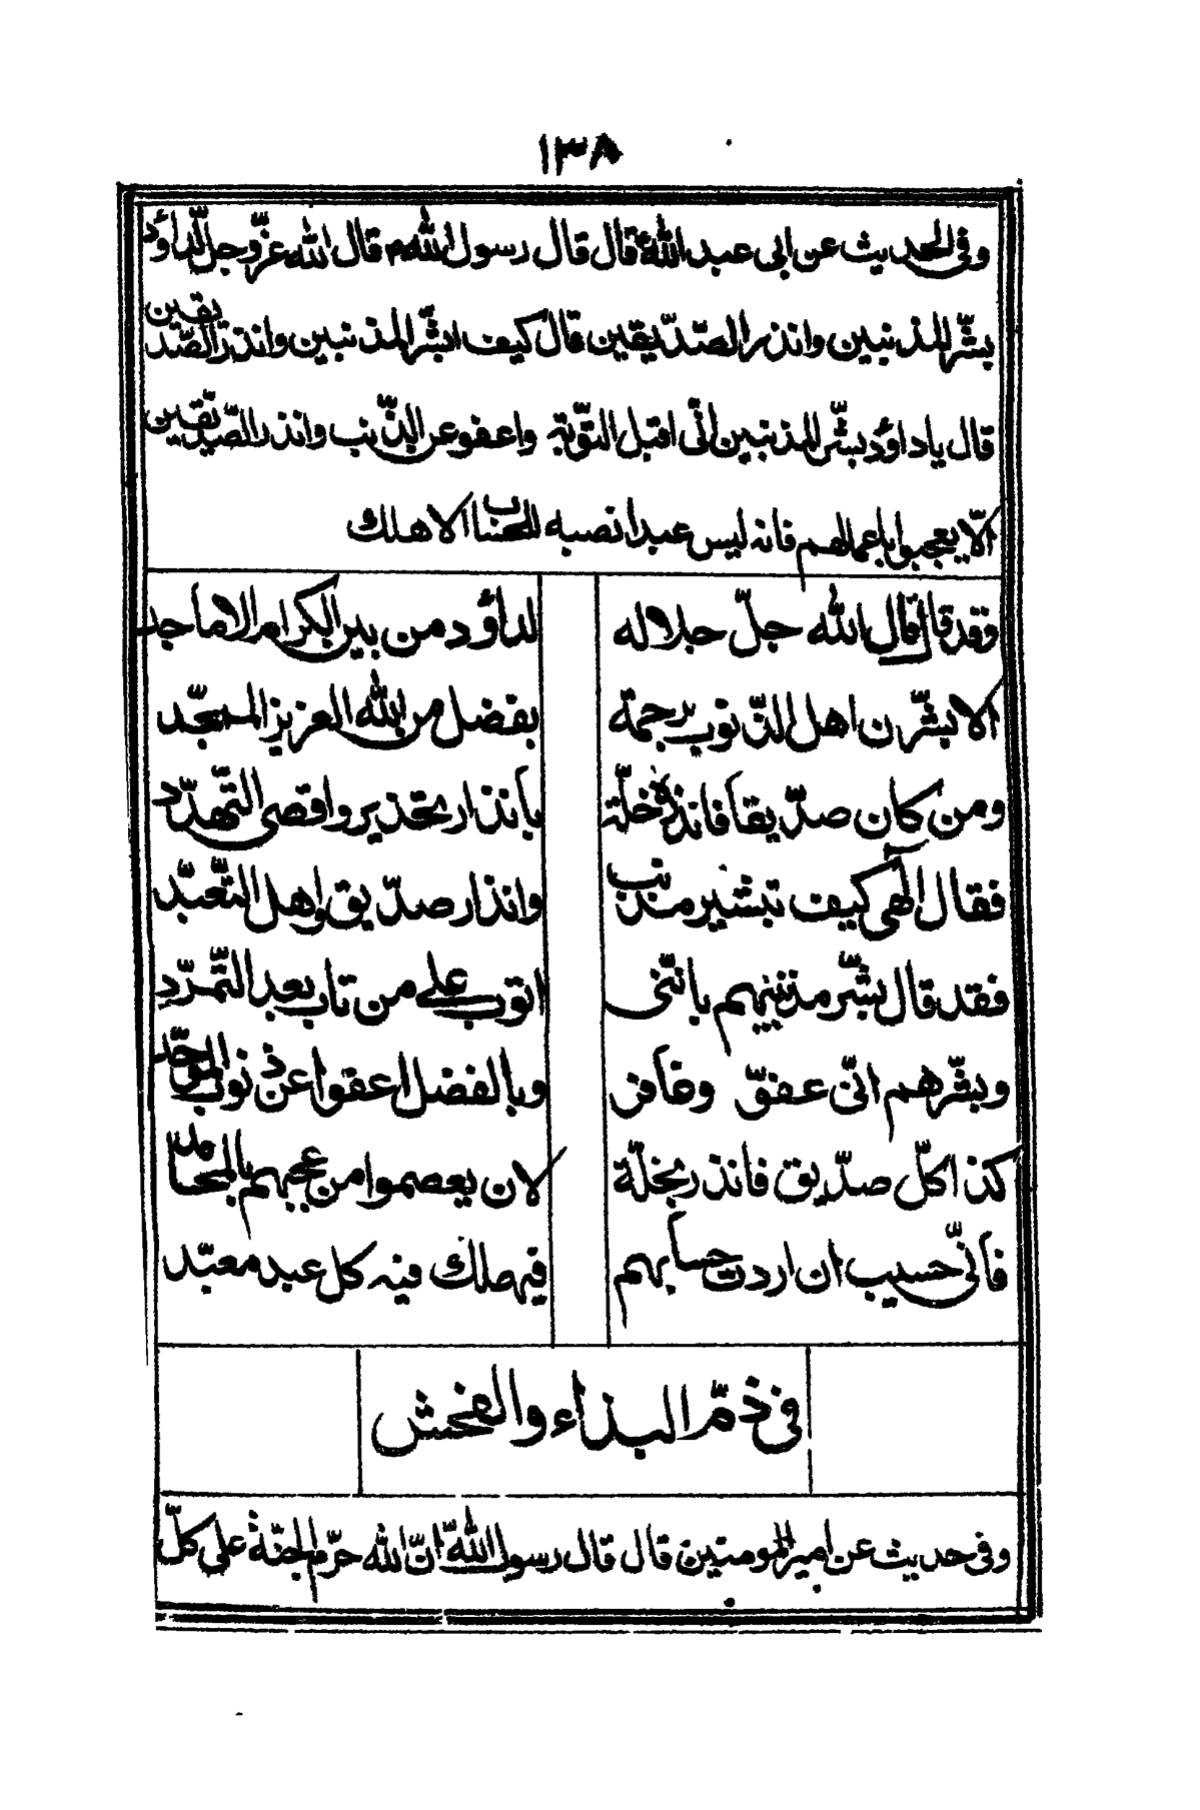 ١٣٨
وفى الحديث عن ابى عبد الله قال قال رسول الله قال الله عزّ وجلّ لداؤد
بشّر المذنبين وانذر الصّدّيقين قال كيف ابشّر المذنبين وانذر الصّدّيقين
قال ياداؤد بشّر المذنبين انّى اقبل التوّبة واعفو عن الذّنب وانذر الصّدّيقين
الّا يعجبوا باعمالهم فانه ليس عبد انصبه للحساب الا هلك
فقد قال قال الله جلّ جلاله لداؤد من بين الكرام الاماجد
الا بشّرن اهل الذّنوب برحمة بفضل من الله العزيز الممجّد
ومن كان صدّيقا فانذره خلّة بانذار تحذير واقصى التّهدّد
فقال الهى كيف تبشير مذنب وانذار صدّيق واهل التّعبّد
فقد قال بشّر مذنبيهم بانّنى اتوب على من تاب بعد التّمرّد
وبشّرهم انّى عفوّ وغافر وبالفضل اعفوا عن ذنوب الموحّد
كذا كلّ صدّيق فانذر بخلّة لان يعصموا من عجبهم بالمحامد
فانّى حسيب ان اردت حسابهم فيهلك فيه كل عبد معبّد
فى ذمّ البذاء والفحش
وفى حديث عن امير المومنين قال قال رسول الله انّ الله حرّم الجنّة على كلّ